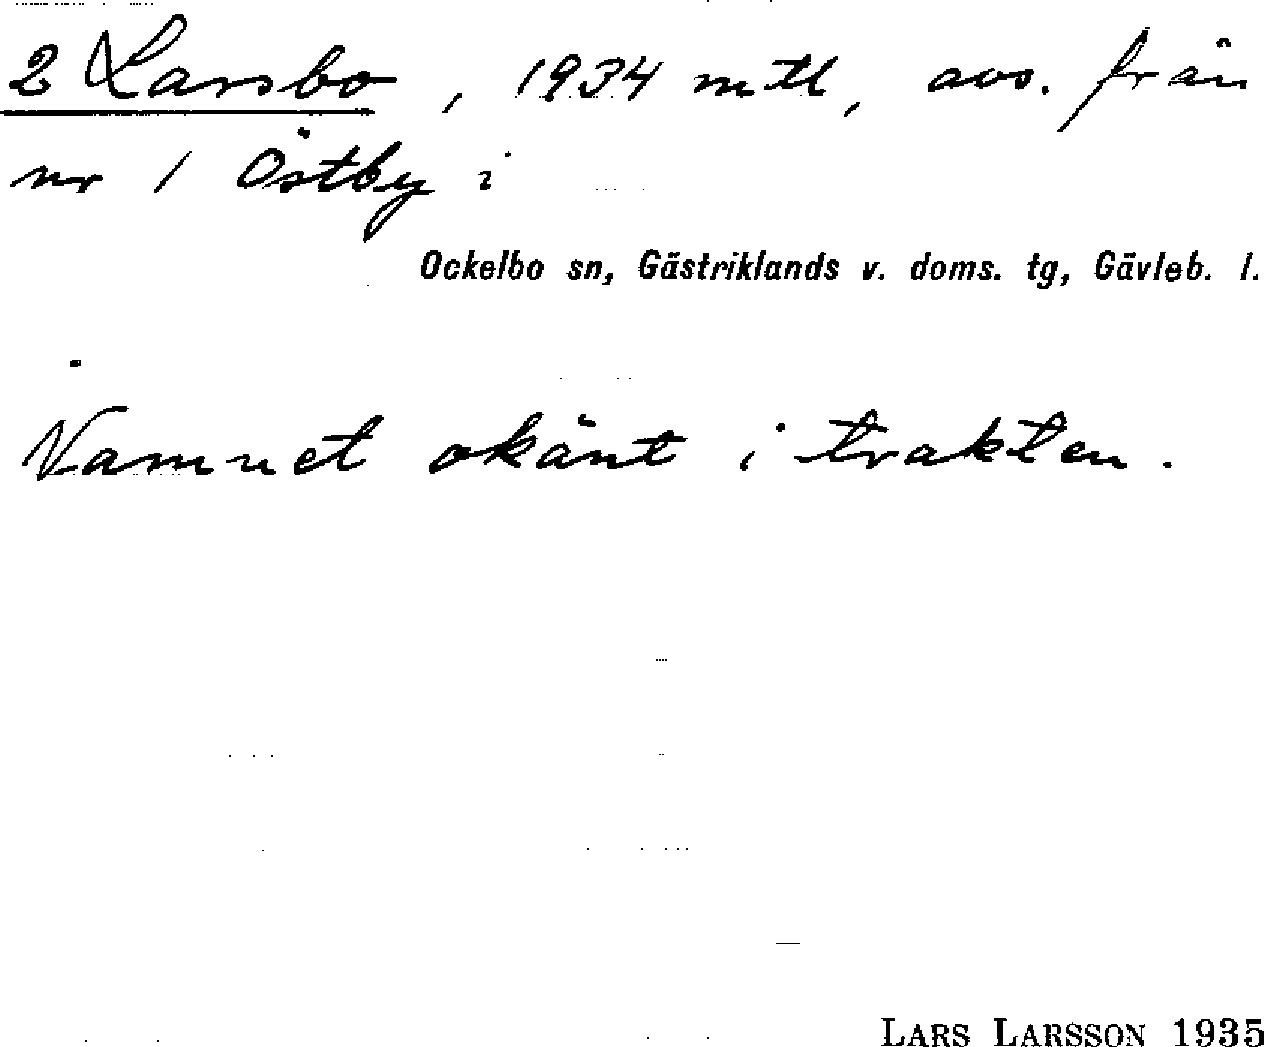 2 Larsbo, 1934 mtl, avs. från
nr 1 Östby i
Ockelbo sn, Gästriklands v. doms. tg, Gävleb. l.
Namnet okänt i trakten.
LARS LARSSON 1935